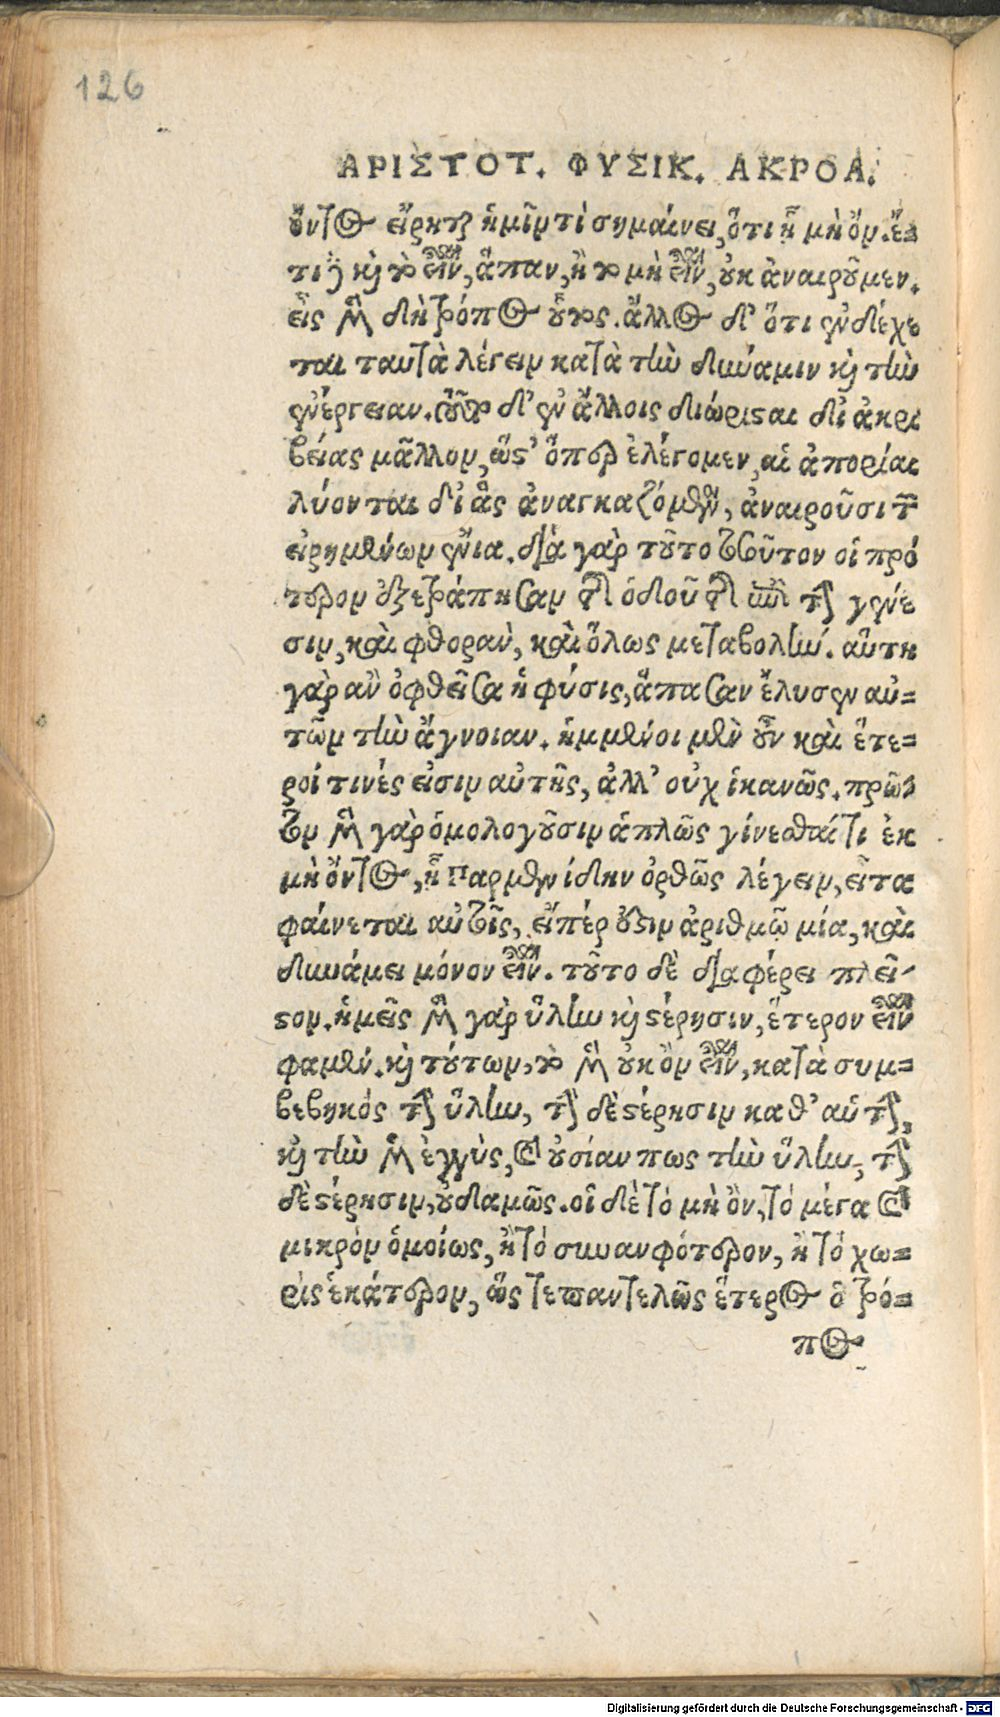 126
ΑΡΙΣΤΟΤ. ΦΥΣΙΚ. ΑΚΡΟΑ.
ὄντος εἴρηται ἡμῖν τὶ σημαίνει, ὅτι ᾗ μὴ ὄν. ἔ=
τι δὲ καὶ τὸ εἶναι, ἅπαν, ἢ τὸ μὴ εἶναι, οὐκ ἀναιροῦμεν.
εἷς μὲν δὴ τρόπος οὗτος. ἄλλος δ' ὅτι ἐνδέχε
ται ταυτὰ λέγειν κατὰ τὴν δύναμιν καὶ τὴν
ἐνέργειαν. τοῦτο δ' ἐν ἄλλοις διώρισαι δι' ἀκρι
βείας μᾶλλον, ὥστ' ὅπερ ἐλέγομεν, αἱ ἀπορίαι
λύονται δι' ἃς ἀναγκαζόμενοι, ἀναιροῦσι τῶν
εἰρημένων ἔνια. διὰ γὰρ τοῦτο τοσοῦτον οἱ πρό
τερον ἐξετράπησαν τῆς ὁδοῦ τῆς ἐπὶ τὴν γένε
σιν, καὶ φθορὰν, καὶ ὅλως μεταβολήν. αὕτη
γὰρ ἂν ὀφθεῖσα ἡ φύσις, ἅπασαν ἔλυσεν αὐ=
τῶν τὴν ἄγνοιαν. ἡμμένοι μὲν οὖν καὶ ἕτε=
ροί τινές εἰσιν αὐτῆς, ἀλλ' οὐχ ἱκανῶς. πρῶ=
τον μὲν γὰρ ὁμολογοῦσιν ἁπλῶς γίνεσθαί τι ἐκ
μὴ ὄντος, ᾗ Παρμενίδην ὀρθῶς λέγειν, εἶτα
φαίνεται αὐτοῖς, εἴπέρ ἐστιν ἀριθμῷ μία, καὶ
δυνάμει μόνον εἶναι. τοῦτο δὲ διαφέρει πλεῖ-
στον. ἡμεῖς μὲν γὰρ ὕλην καὶ στέρησιν, ἕτερον εἶναι
φαμέν. καὶ τούτων, τὸ μὲν οὐκ ὂν εἶναι, κατὰ συμ=
βεβηκὸς τὴν ὕλην, τὴν δὲ στέρησιν καθ' αὑτὴν,
καὶ τὴν μὲν ἐγγὺς, καὶ οὐσίαν πως τὴν ὕλην, τὴν
δὲ στέρησιν, οὐδαμῶς. οἱ δὲ τὸ μὴ ὂν, τὸ μέγα καὶ
μικρὸν ὁμοίως, ἢ τὸ συναμφότερον, ἢ τὸ χω=
ρὶς ἑκάτερον, ὥστε παντελῶς ἕτερος ὁ τρό=
πος
Digitalisierung gefördert durch die Deutsche Forschungsgemeinschaft - DFG